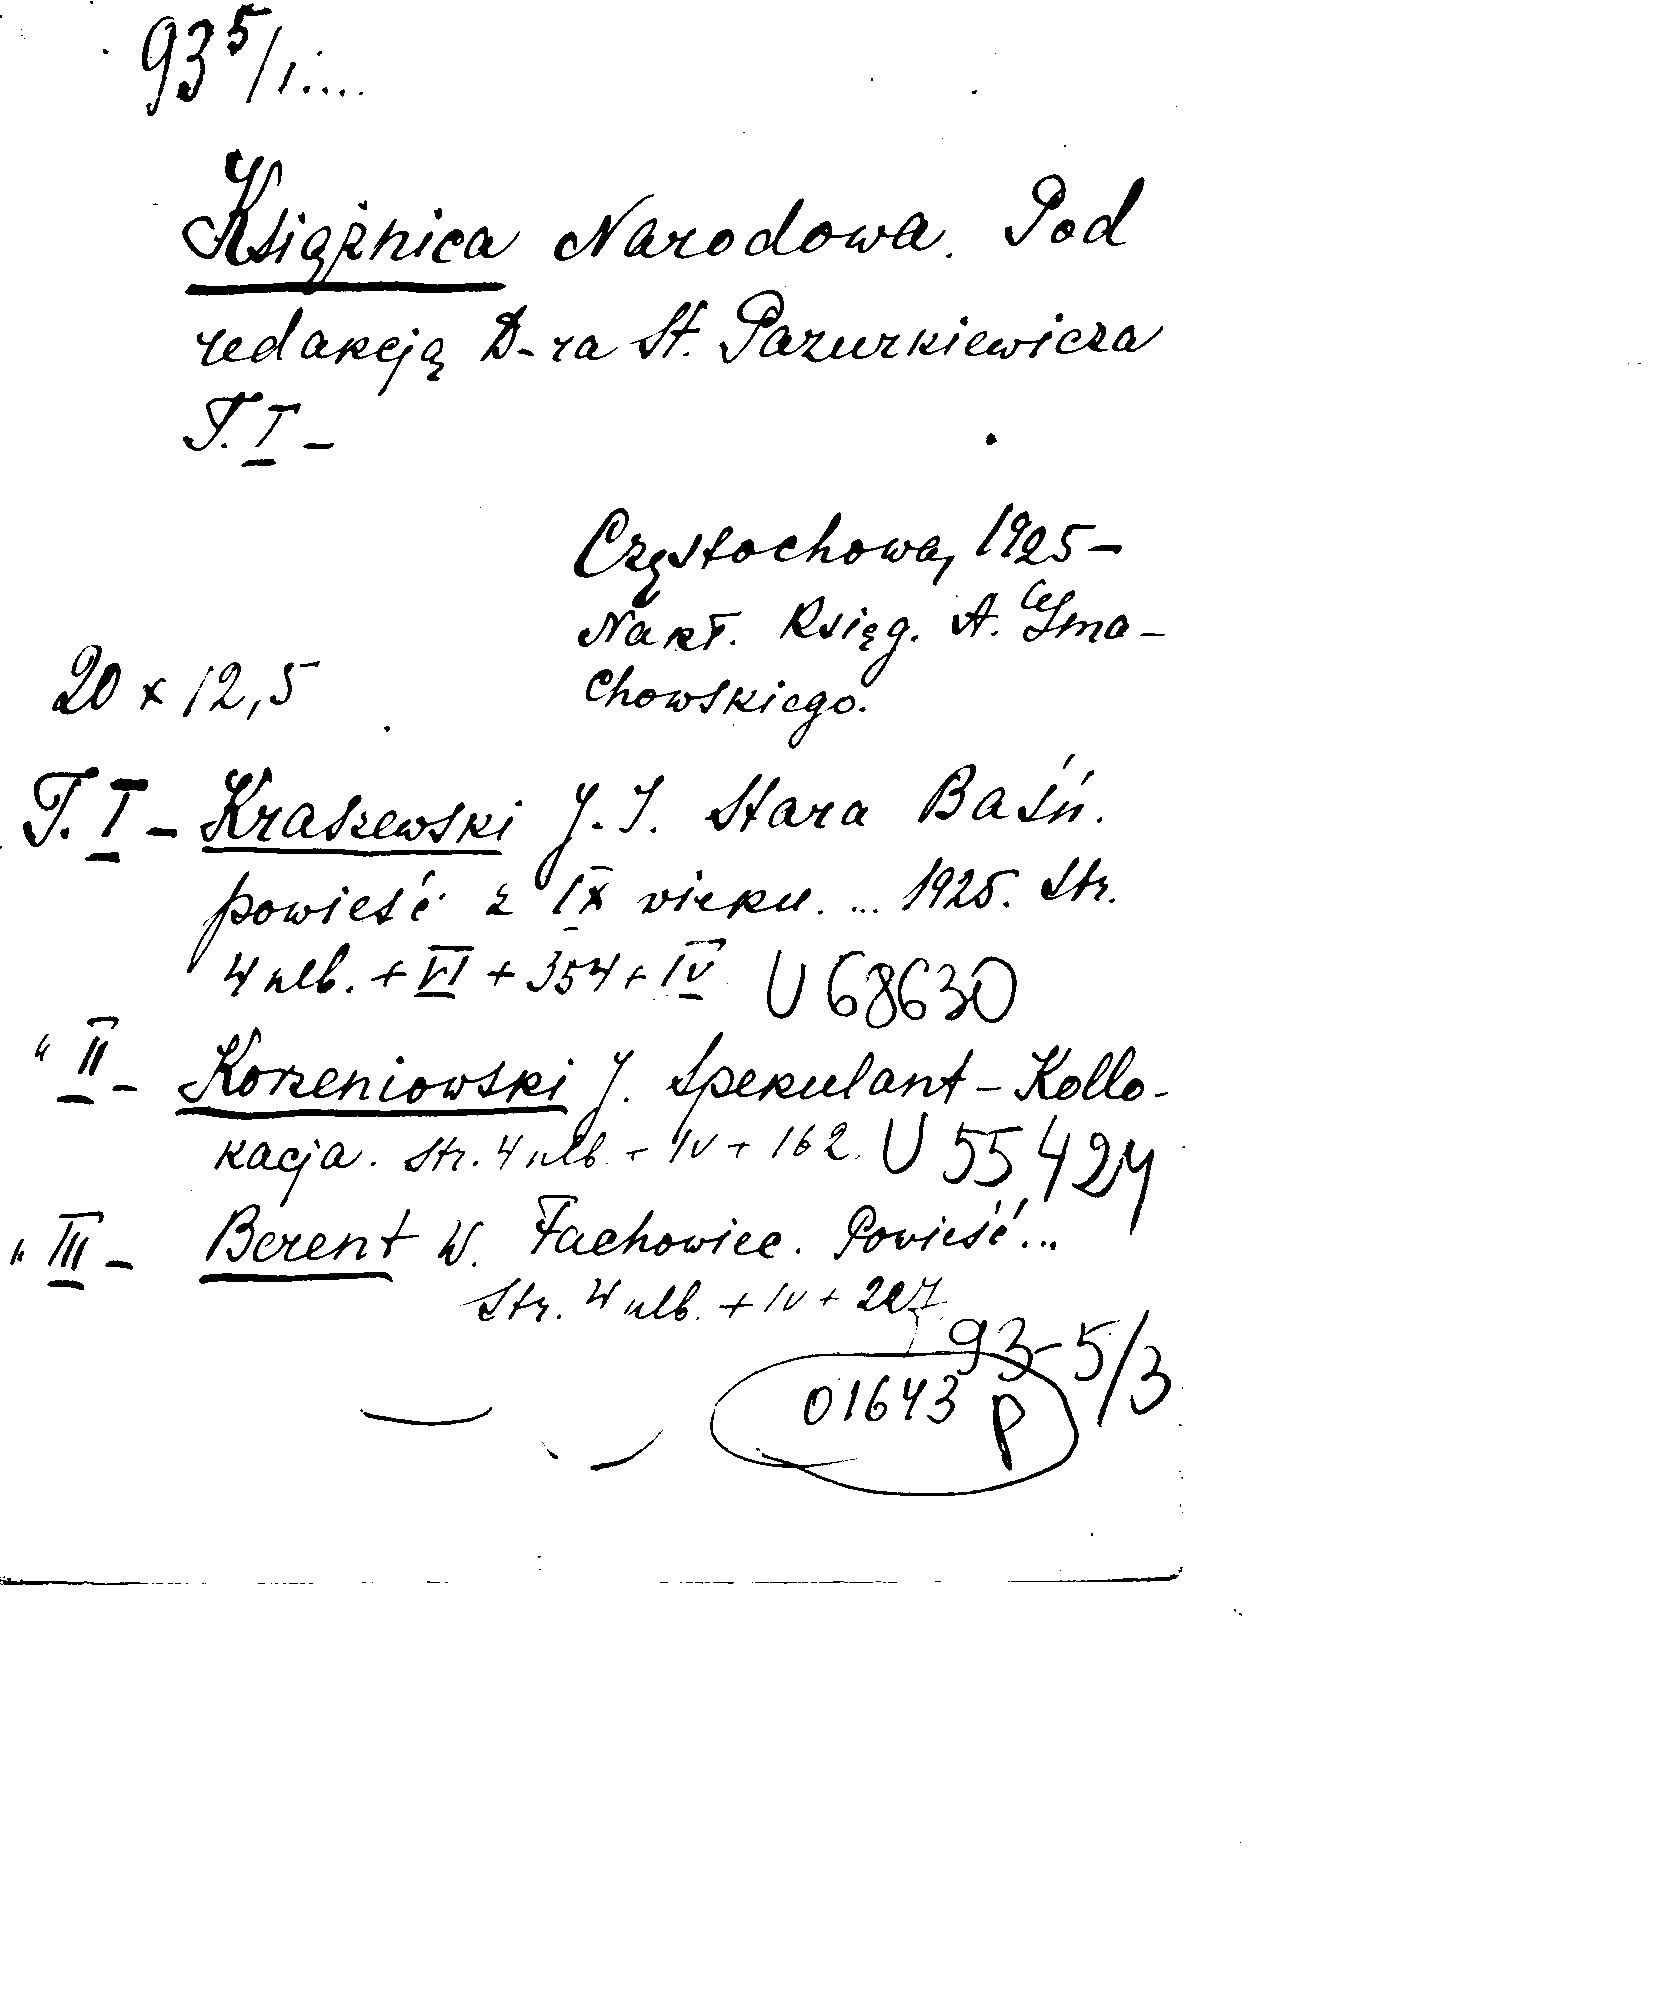 93 5/1....
Książnica Narodowa. Pod
redakcją D-ra St. Pazurkiewicza
T. I –
Częstochowa, 1925 –
Nakł. Księg. A. Gma-
20 x 12,5 chowskiego.
T. I – Kraszewski J. I. Stara Baśń.
powieść z IX wieku. ... 1925. Str.
4 nlb. + VI + 354 + IV U 68630
" II – Korzeniowski J. Spekulant – Kollo-
kacja. Str. 4 nlb. + IV + 162. U 55424
" III – Berent W. Fachowiec. Powieść...
Str. 4 nlb. + IV + 207
93-5/3
01643 P